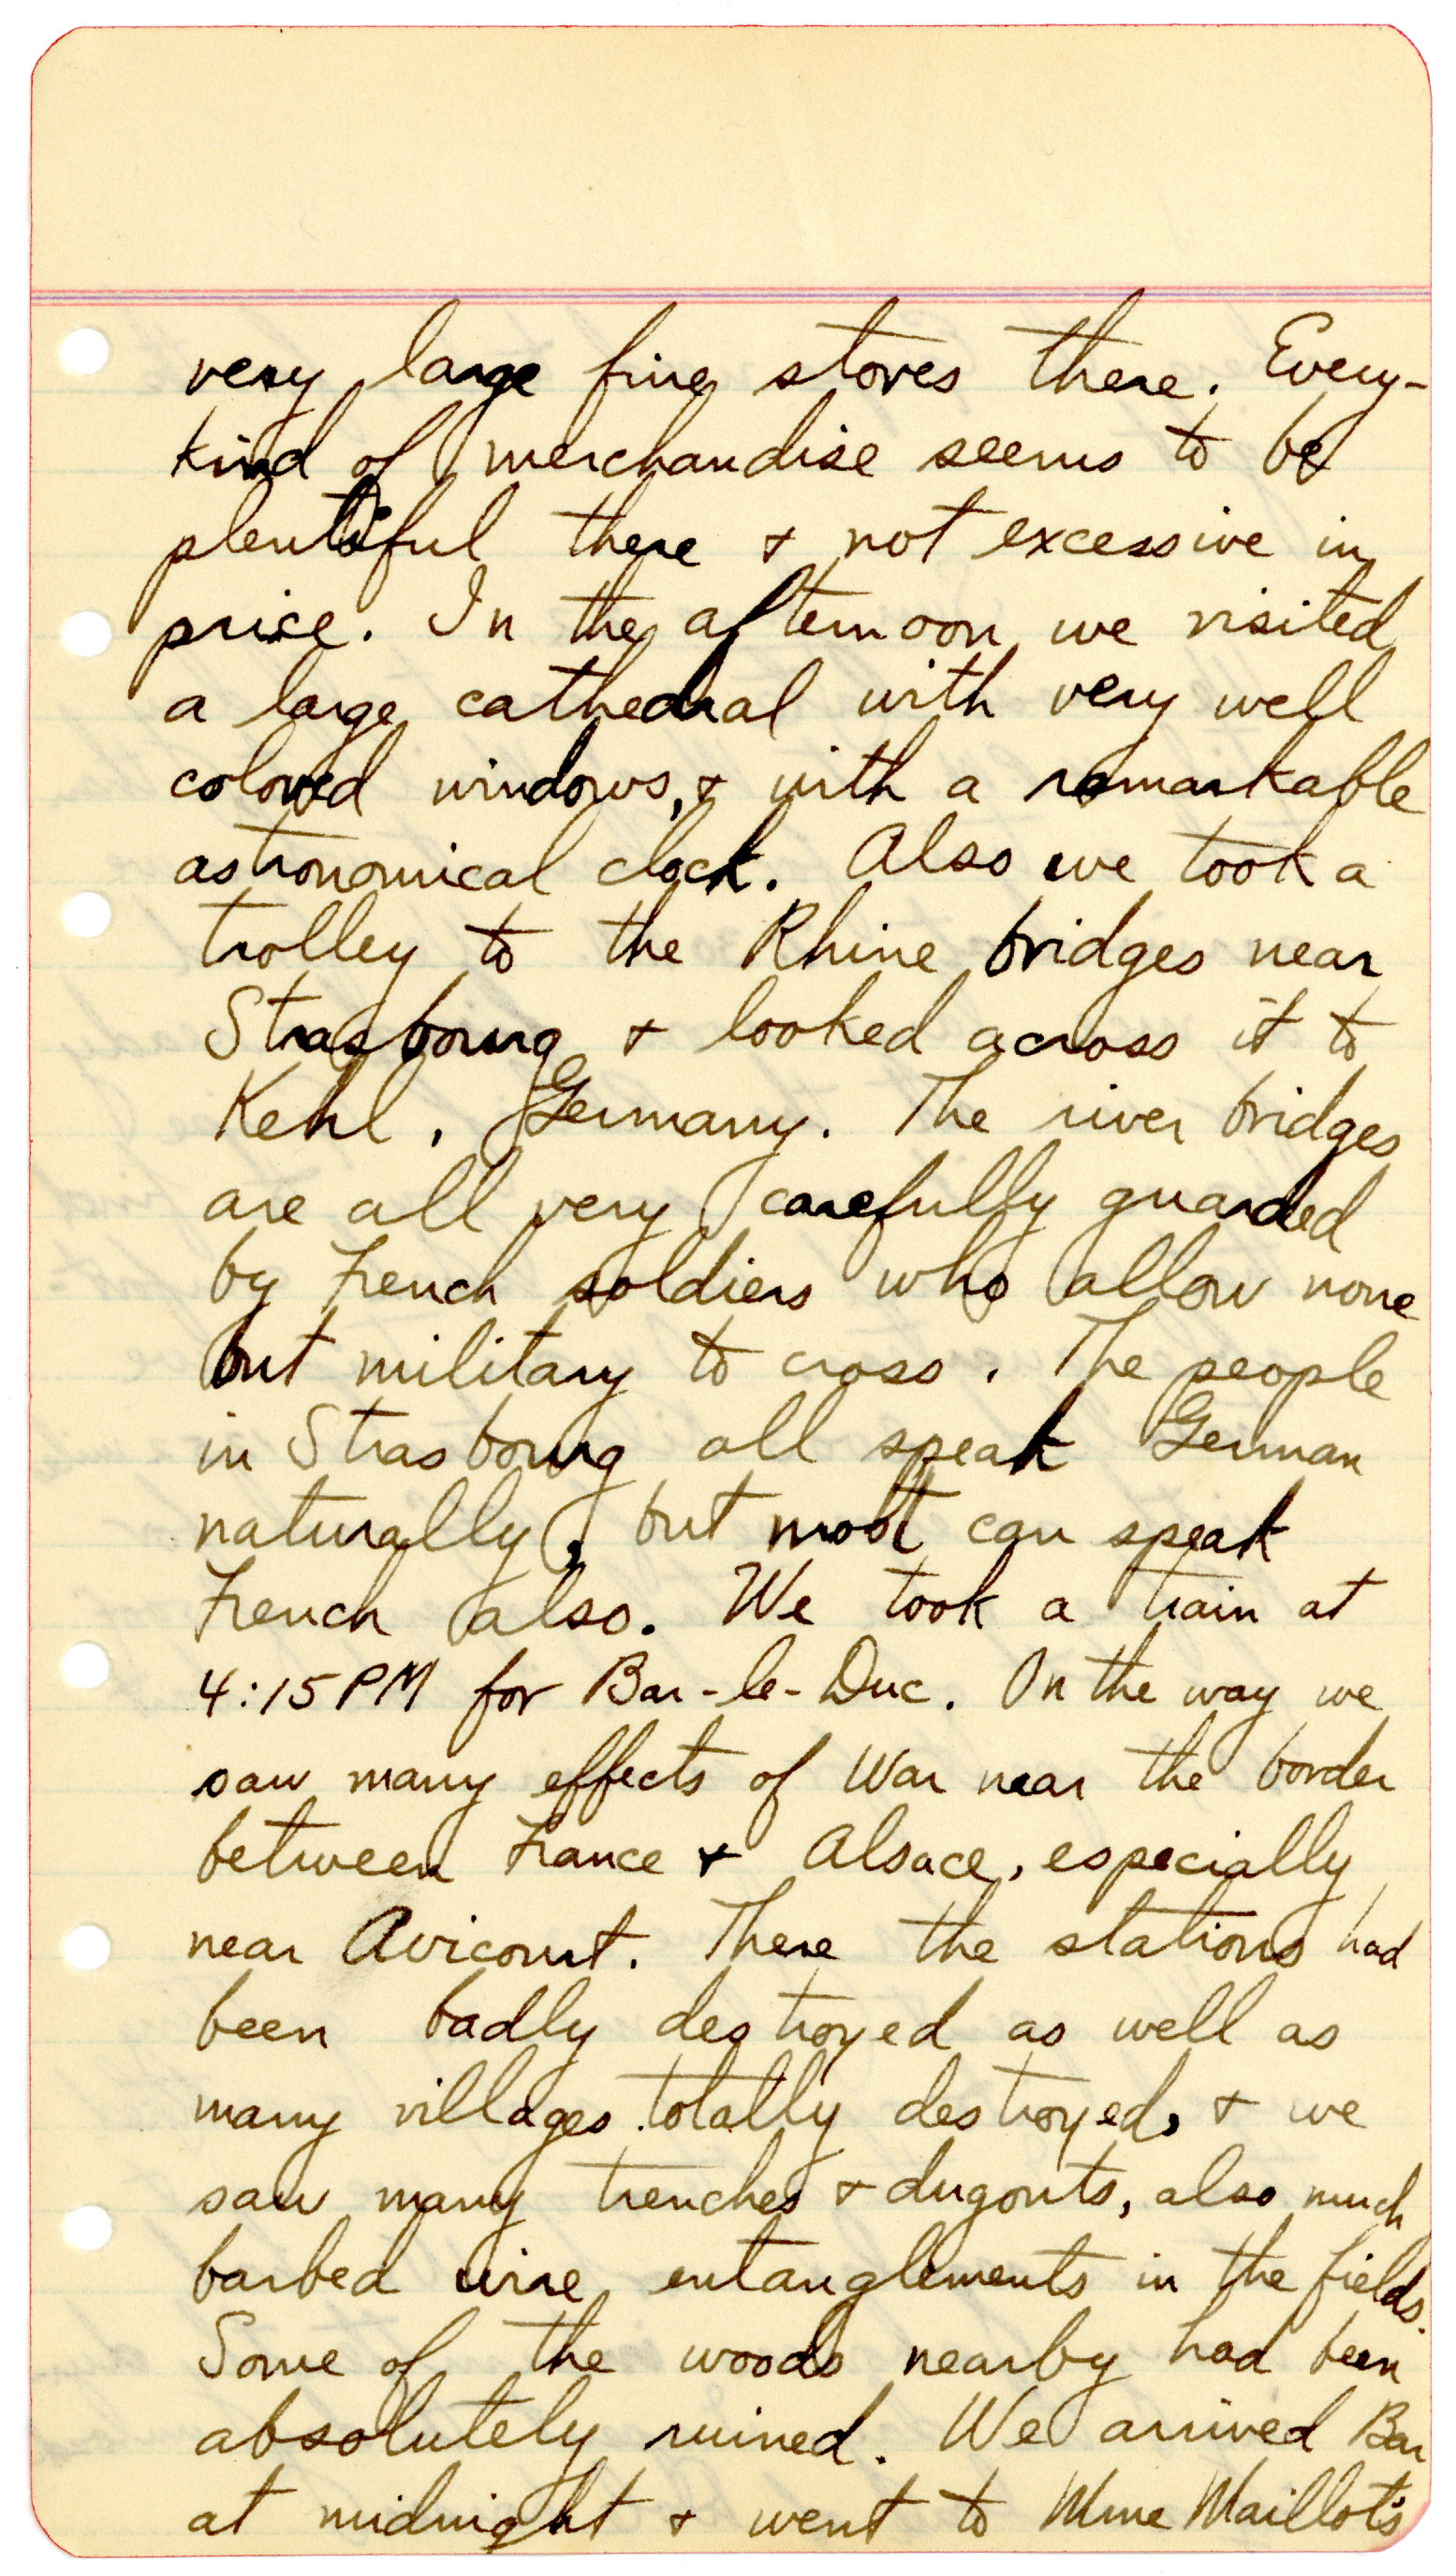 very large fine stores there. Every-
kind of merchandise seems to be
plentiful there & not excessive in
price. In the afternoon we visited
a large cathedral with very well
colored windows, & with a remarkable
astronomical clock. Also we took a
trolley to the Rhine bridges near
Strasbourg & looked across it to
Kehl, Germany. The river bridges
are all very carefully guarded
by French soldiers who allow none
but military to cross. The people
in Strasbourg all speak German
naturally, but most can speak
French also. We took a train at
4:15 PM for Bar-le-Duc. On the way we
saw many effects of War near the border
between France & Alsace, especially
near Avicourt. There the stations had
been badly destroyed as well as
many villages totally destroyed, & we
saw many trenches & dugouts, also much
barbed wire entanglements in the fields.
Some of the woods nearby had been
absolutely ruined. We arrived Bar
at midnight & went to Mme Maillot's